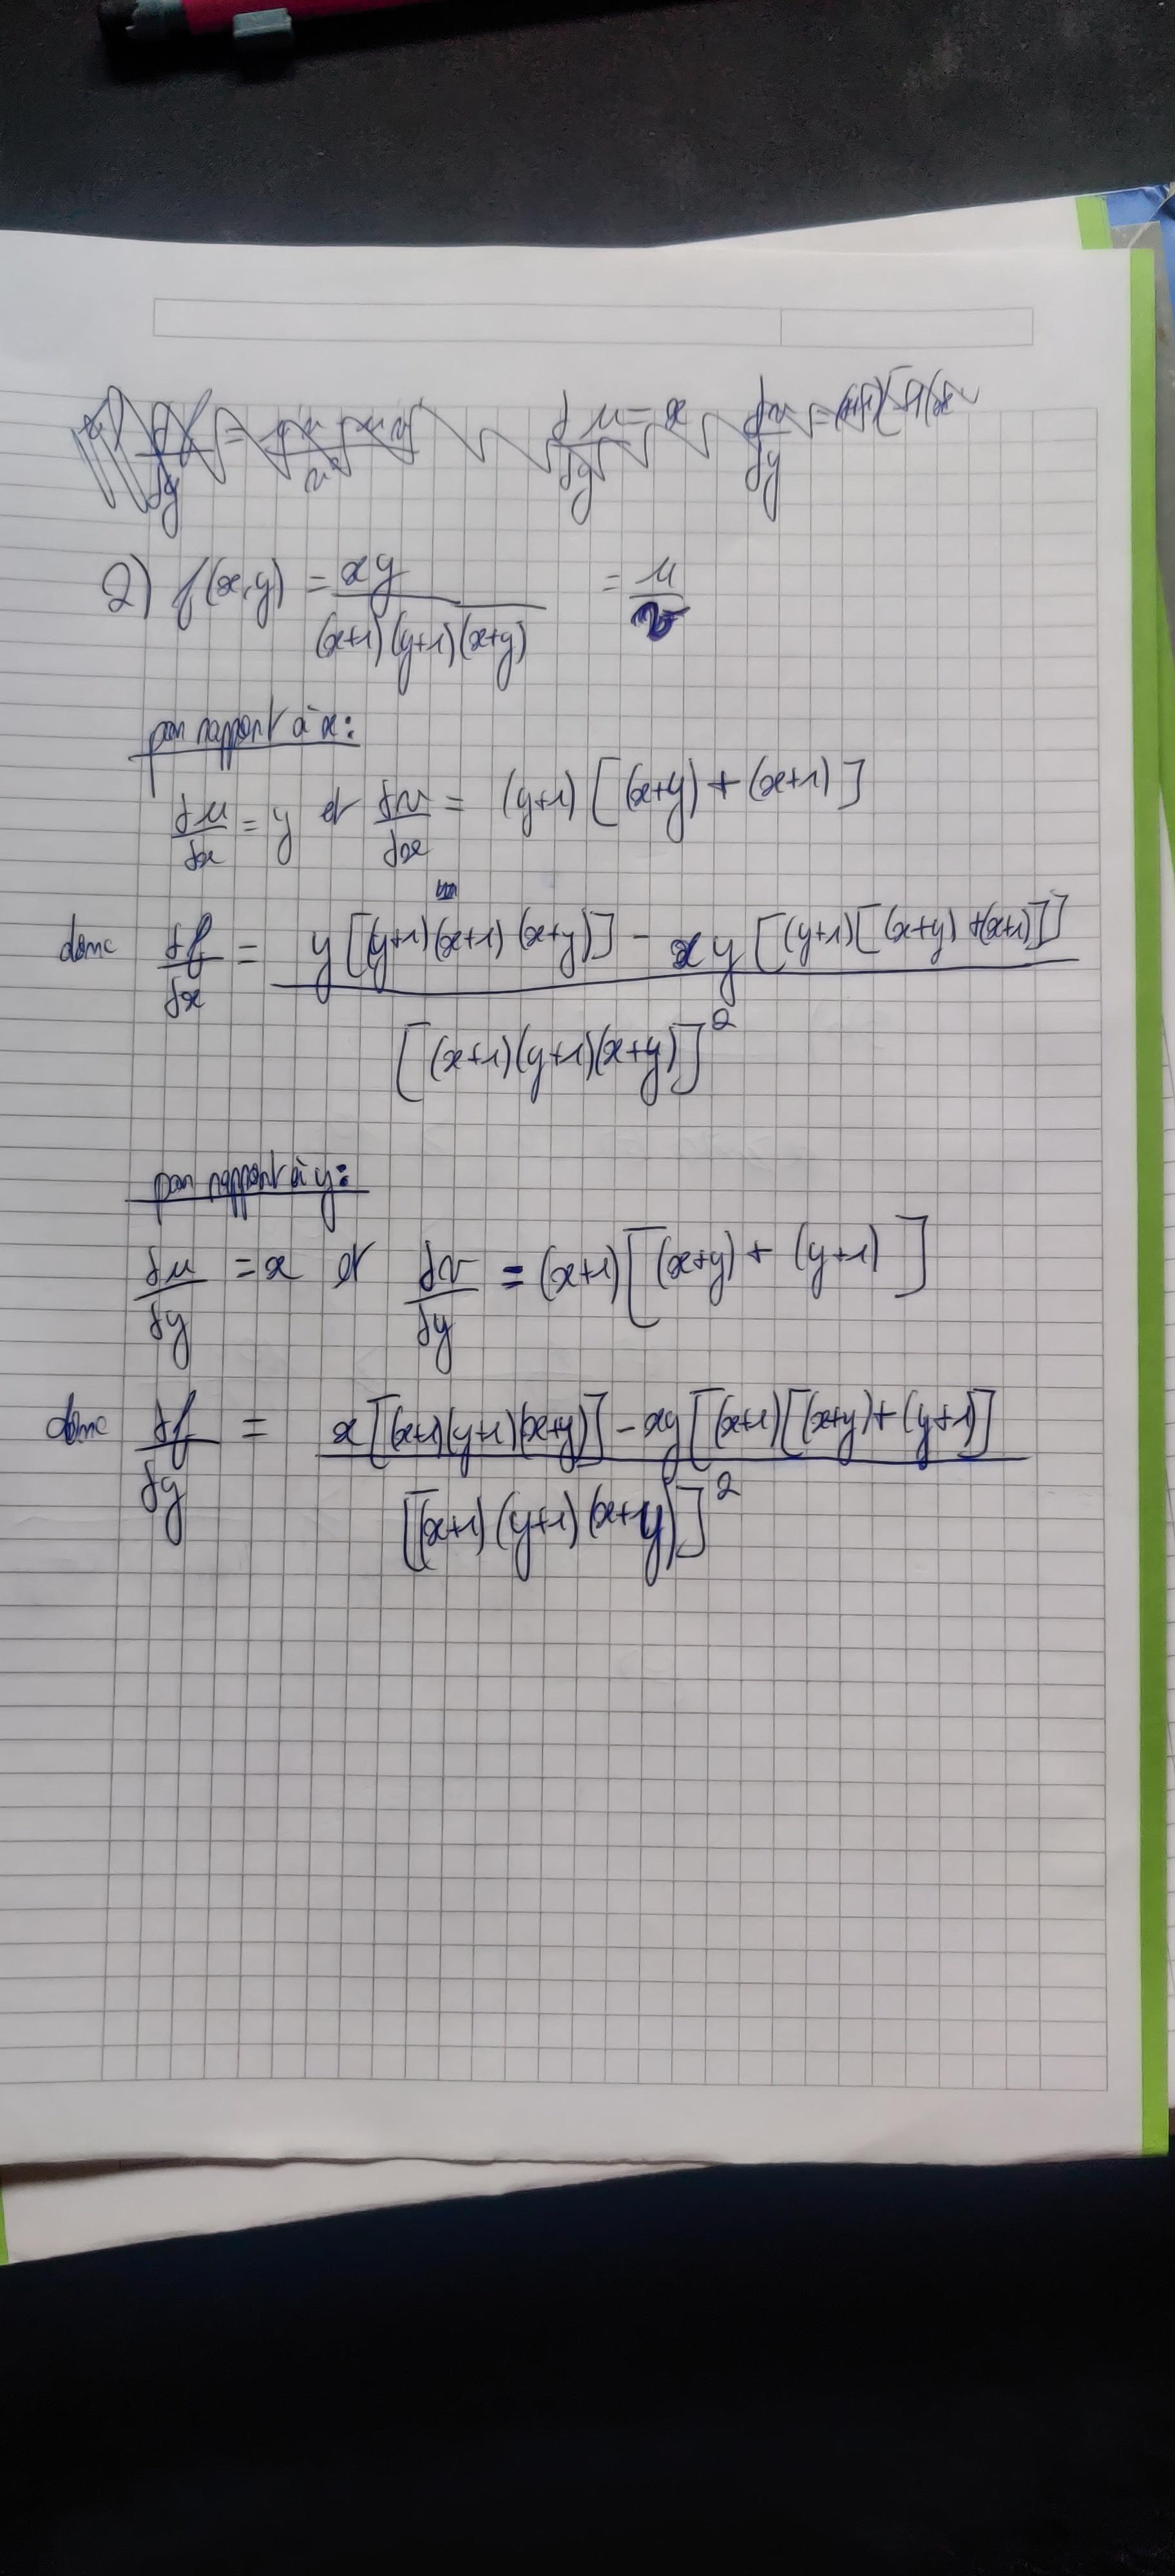 2) f(x,y) = xy / (x+1)(y+1)(x+y) = u/v
par rapport à x:
δu/δx = y et δv/δx = (y+1)[(x+y)+(x+1)]
donc δf/δx = y[(y+1)(x+1)(x+y)] - xy[(y+1)[(x+y)+(x+1)]] / [(x+1)(y+1)(x+y)]²
par rapport à y:
δu/δy = x et δv/δy = (x+1)[(x+y)+(y+1)]
donc δf/δy = x[(x+1)(y+1)(x+y)] - xy[(x+1)[(x+y)+(y+1)] / [(x+1)(y+1)(x+y)]²